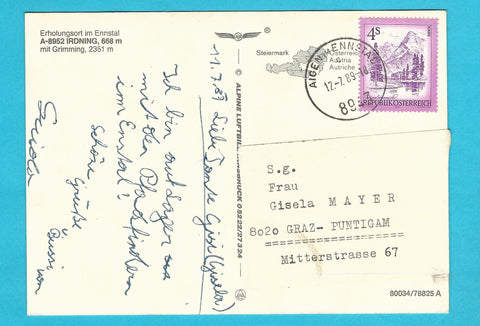 Erholungsort im Ennstal
A-8952 IRDNING, 668 m
mit Grimming, 2351 m
Steiermark
Österreich
Austria
Autriche
11.7.89 Liebe Tante Gisi (Gisela)
Ich bin auf Lager
mit den Pfadfindern
im Ennstal!
Schöne Grüße
Bussi von
© ALPINE LUFTBILD INNSBRUCK 05222/27324
AIGEN, ENNSTAL
12.-7. 89-18
4S
REPUBLIK ÖSTERREICH
S.g.
Frau
Gisela MAYER
8020 GRAZ- PUNTIGAM
Mitterstrasse 67
80034/78825 A